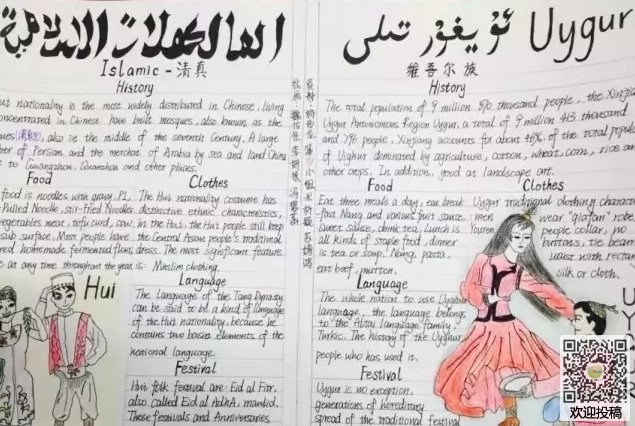 Islamic - 清真
History
Hui nationality is the most widely distributed in Chinese, living
concentrated in Chinese have built mosques, also known as the
also in the middle of the seventh Century. A large
ber of Persian and the merchat of Arabia by sea and land China
to Guangzhou, Quanzhou and other places.
Food
food is noodles with gravy,
Pulled Noodle, stir-Fried Noodles
vegetables meat, tofu curd,
sub surface. Most people have
red homemade fermented flour
at any time throughout the year is:
Clothes
The Hui nationality costume has
distinctive ethnic characteristics,
in the Hui. the Hui people still keep
the Central Asian people's traditional
dress. The most significant feature
Muslim clothing.
Hui
Language
The Language of the Tang Dynasty
can be said to be a kind of language
of the Hui nationality, because he
contains two basic elements of the
national language.
Festival
Hui folk festival are: Eid al Fitr.
also called Eid al Adha, mawlid.
These festivals and Anniversaries
ئۇيغۇر تىلى Uygur
维吾尔族
History
The total population of 9 million 870 thousand people, the Xinjia
Uygur Autonomous Region Uygu, a total of 9 million 413 thousand
and 796 people, Xinjiang accounts for about 46% of the total popul
of Uighur dominated by agriculture, cotton, wheat, corn, rice an
other crops. In addition, good at landscape art.
Food
Eat three meals a day, eat break
fast Nang and various fruit sauce.
Sweet sauce, drink tea, Lunch is
all kinds of staple food, dinner
is tea or soup. Nang, pasta,
eat beef, mutton.
Clothes
Uygur traditional clothing character
men wear "qiafan" robe,
Youren people collar, no
buttons, tie beam
waist with rectan
silk or cloth.
Language
The whole nation to use Uyghur
language, the language belongs
to the Altai language family,
Turkic. The history of the Uyghur
people who has used it.
Festival
Uygur is no exception,
generations of hereditary
spread of the traditional festival
U
Y
欢迎投稿